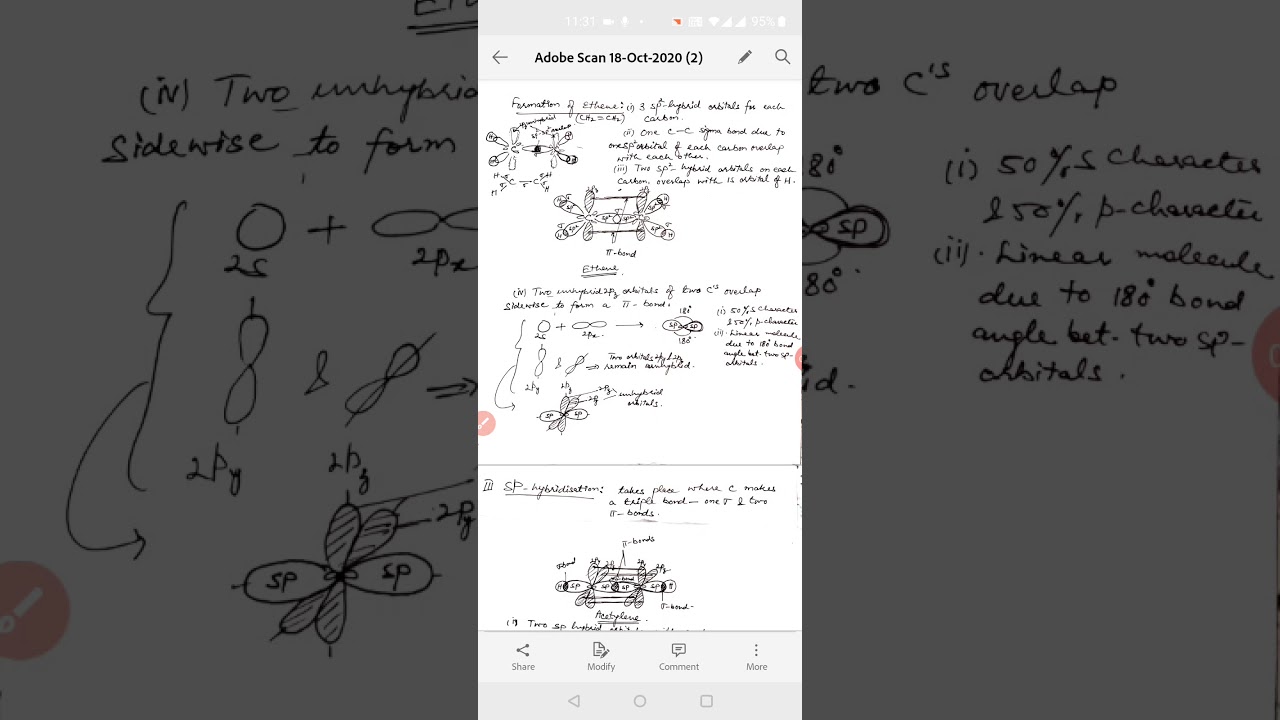 11:31
95%
Adobe Scan 18-Oct-2020 (2)
Formation of Ethene: (i) 3 sp²-hybrid orbitals for each
(CH₂=CH₂)
carbon.
(ii) One C-C sigma bond due to
one sp² orbital of each carbon overlap
with each other.
(iii) Two sp²-hybrid orbitals on each
carbon overlap with 1s orbital of H.
H σ σ H
C — C
H σ σ σ H
sp² sp²
π-bond
Ethene
(iv) Two unhybrid 2pz orbitals of two C's overlap
sidewise to form a π-bond.
2s + 2px → sp sp
180°
180°
(i) 50% s character
& 50% p-character
(ii). Linear molecule
due to 180° bond
angle bet. two sp-
orbitals.
2py & 2pz ⇒ Two orbitals 2py & 2pz
remain unhybrid.
2pz
2py
unhybrid
orbitals.
sp sp
III SP-hybridisation: takes place where C makes
a triple bond — one σ & two
π-bonds.
π-bonds
σ-bond
2pz 2py 2pz 2py
σ-bond
H sp sp sp sp H
σ-bond
Acetylene.
(ii) Two sp hybrid
Share
Modify
Comment
More
(iv) Two unhybrid
two C's overlap
sidewise to form
2s + 2px
180°
sp
180°
(i) 50% s character
& 50% p-character
(ii). Linear molecule
due to 180° bond
angle bet. two sp-
orbitals.
& ⇒
2py
2pz
2py
sp sp